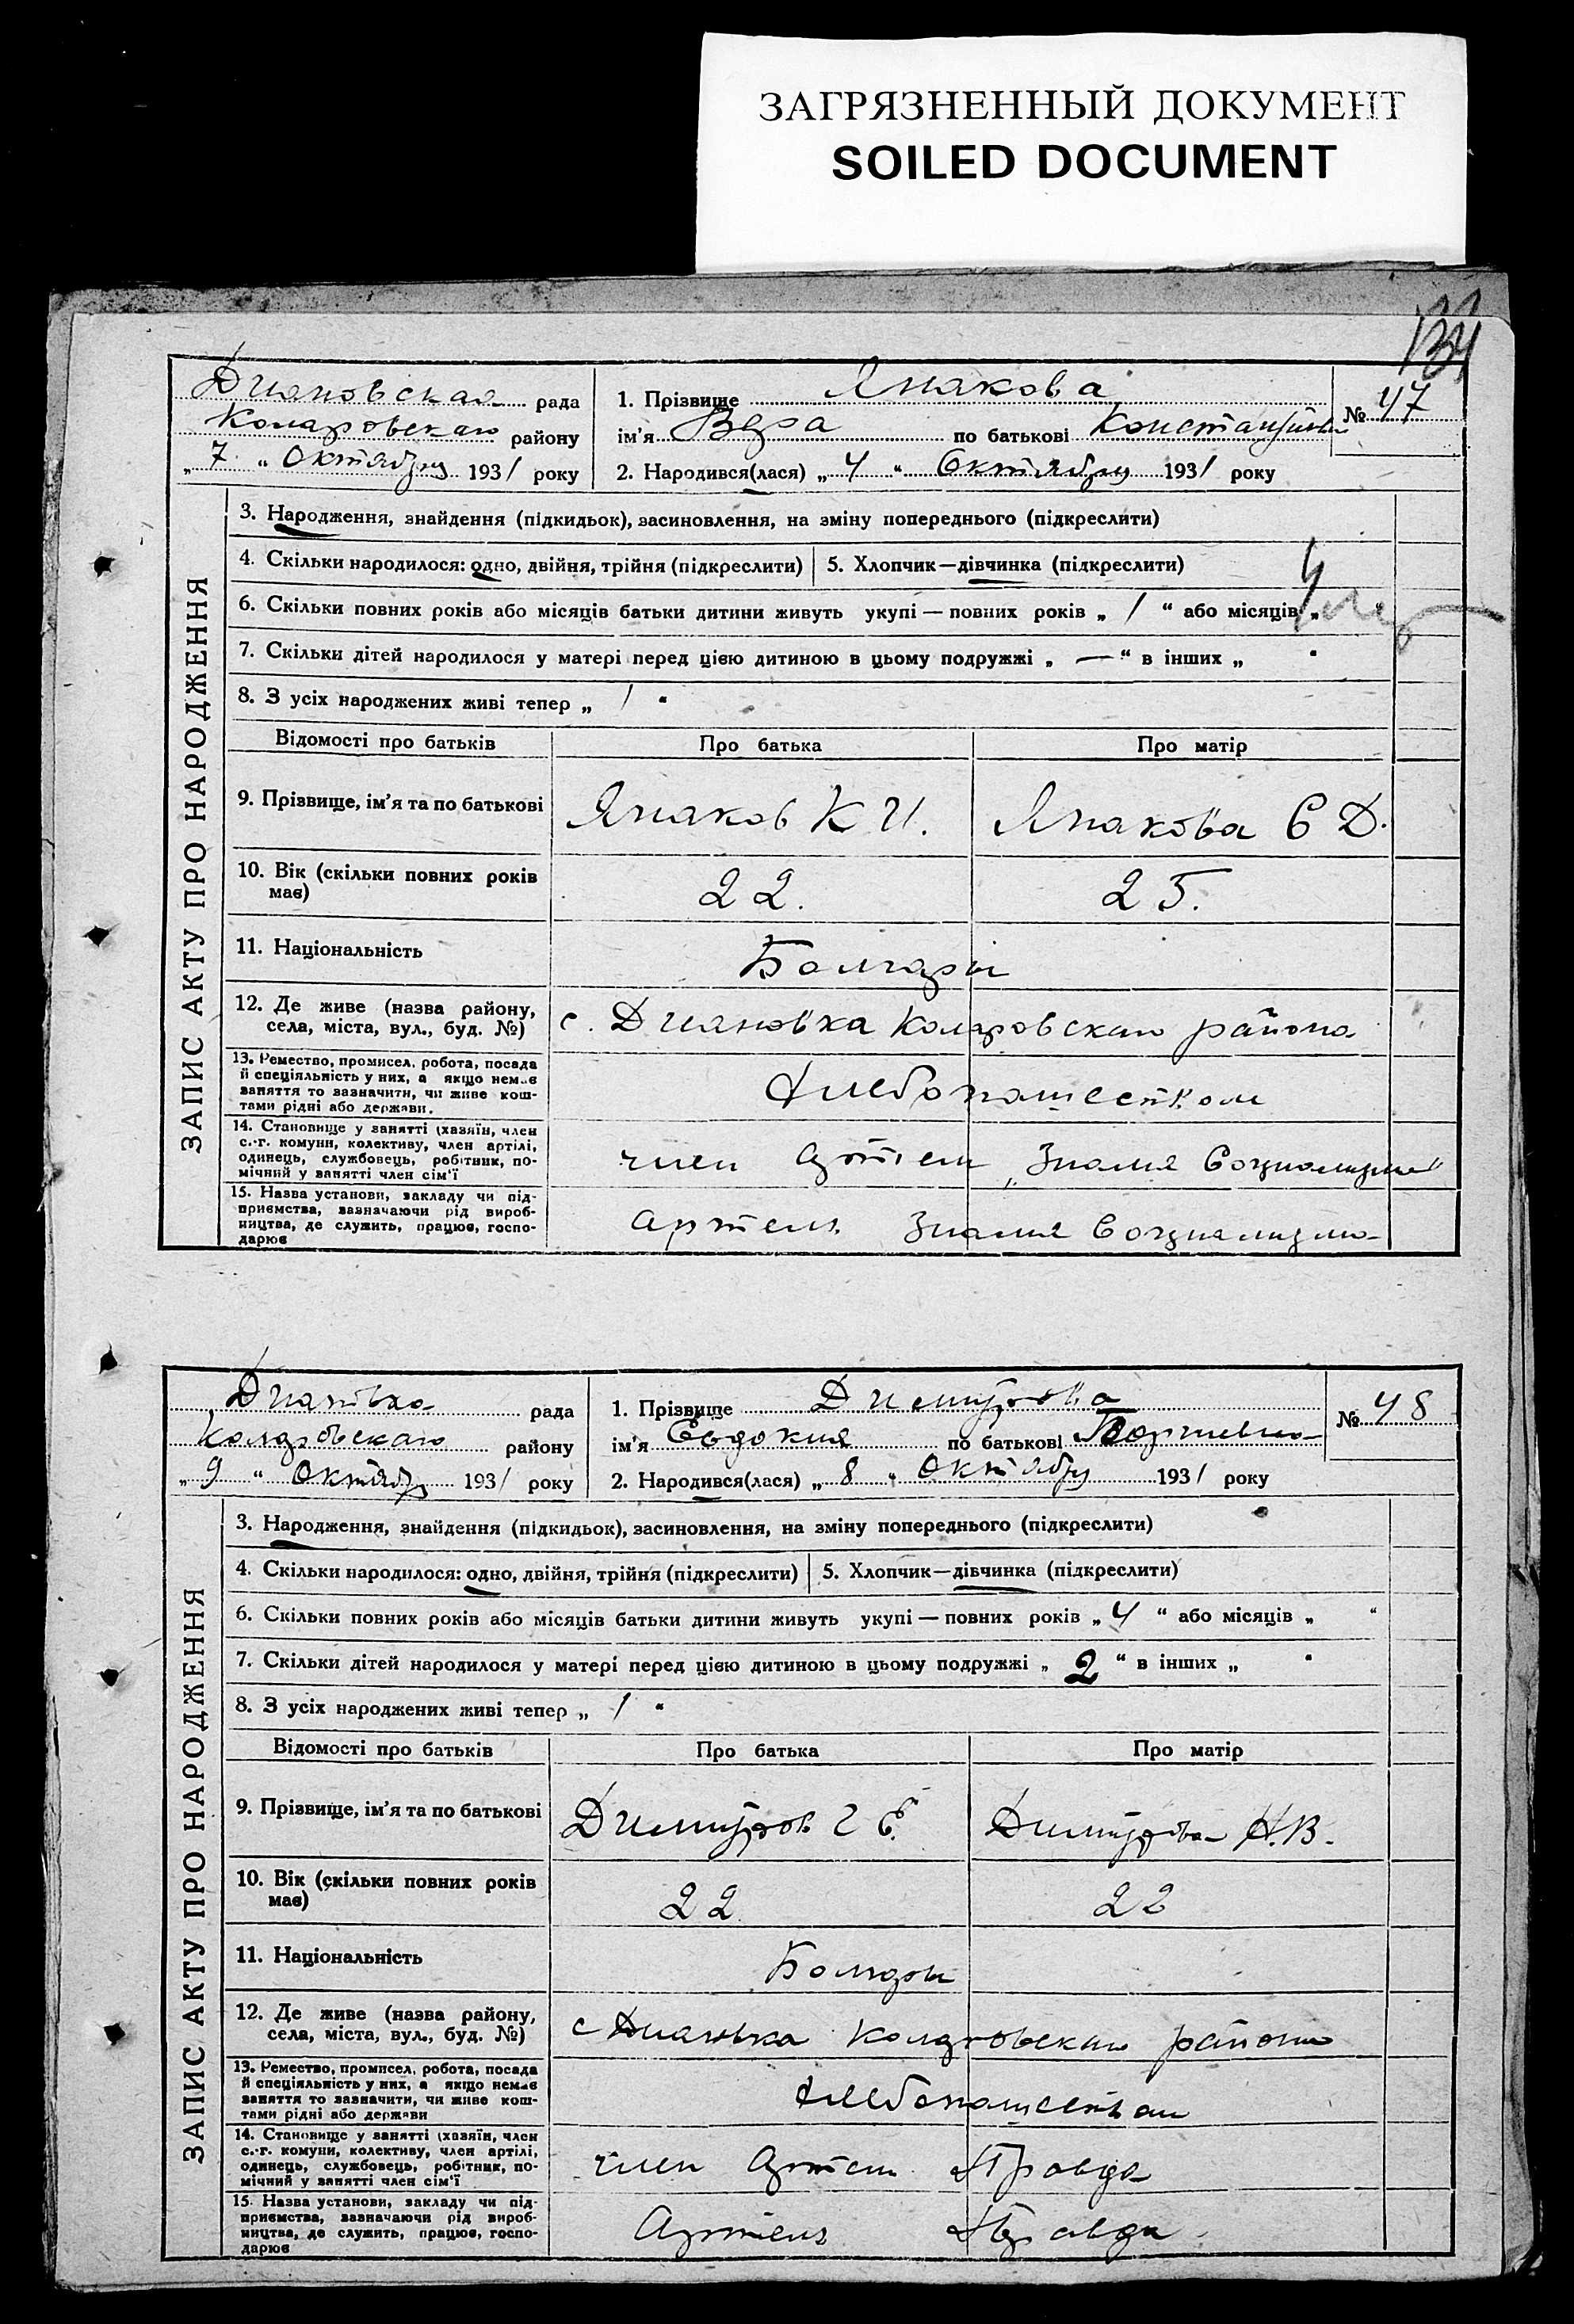 ЗАГРЯЗНЕННЫЙ ДОКУМЕНТ
SOILED DOCUMENT
134
Диановская рада
Коларовского району
„ 7 “ Октября 1931 року
1. Прізвище Янакова
ім'я Вера по батькові Константиновна
2. Народився(лася) „ 4 “ Октября 1931 року
№ 47
ЗАПИС АКТУ ПРО НАРОДЖЕННЯ
3. Народження, знайдення (підкидьок), засиновлення, на зміну попереднього (підкреслити)
4. Скільки народилося: одно, двійня, трійня (підкреслити) 5. Хлопчик—дівчинка (підкреслити)
6. Скільки повних років або місяців батьки дитини живуть укупі — повних років „ 1 “ або місяців „
7. Скільки дітей народилося у матері перед цією дитиною в цьому подружжі „ — “ в інших „ “
8. З усіх народжених живі тепер „ 1 “
Відомості про батьків Про батька Про матір
9. Прізвище, ім'я та по батькові Янаков К И. Янакова Е Д.
10. Вік (скільки повних років має) 22. 25.
11. Національність Болгары
12. Де живе (назва району, села, міста, вул., буд. №) с. Диановка Коларовского района
13. Ремество, промисел, робота, посада й спеціяльність у них, а якщо немає заняття то зазначити, чи живе коштами рідні або держави. Хлебопашеством
14. Становище у занятті (хазяїн, член с.-г. комуни, колективу, член артілі, одинець, службовець, робітник, помічний у занятті член сім'ї член Артели „Знамя Социализма"
15. Назва установи, закладу чи підприємства, зазначаючи рід виробництва, де служить, працює, господарює Артель Знамя Социализма
Диановка рада
Коларовского району
„ 9 “ Октября 1931 року
1. Прізвище Димитрова
ім'я Евдокия по батькові Георгиевна
2. Народився(лася) „ 8 “ Октября 1931 року
№ 48
ЗАПИС АКТУ ПРО НАРОДЖЕННЯ
3. Народження, знайдення (підкидьок), засиновлення, на зміну попереднього (підкреслити)
4. Скільки народилося: одно, двійня, трійня (підкреслити) 5. Хлопчик—дівчинка (підкреслити)
6. Скільки повних років або місяців батьки дитини живуть укупі — повних років „ 4 “ або місяців „ “
7. Скільки дітей народилося у матері перед цією дитиною в цьому подружжі „ 2 “ в інших „ “
8. З усіх народжених живі тепер „ 1 “
Відомості про батьків Про батька Про матір
9. Прізвище, ім'я та по батькові Димитров Г Е. Димитрова Н.В.
10. Вік (скільки повних років має) 22 22
11. Національність Болгары
12. Де живе (назва району, села, міста, вул., буд. №) с Диановка Коларовского района
13. Ремество, промисел, робота, посада й спеціяльність у них, а якщо немає заняття то зазначити, чи живе коштами рідні або держави Хлебопашеством
14. Становище у занятті (хазяїн, член с.-г. комуни, колективу, член артілі, одинець, службовець, робітник, помічний у занятті член сім'ї член Артели Правда
15. Назва установи, закладу чи підприємства, зазначаючи рід виробництва, де служить, працює, господарює Артель Правда